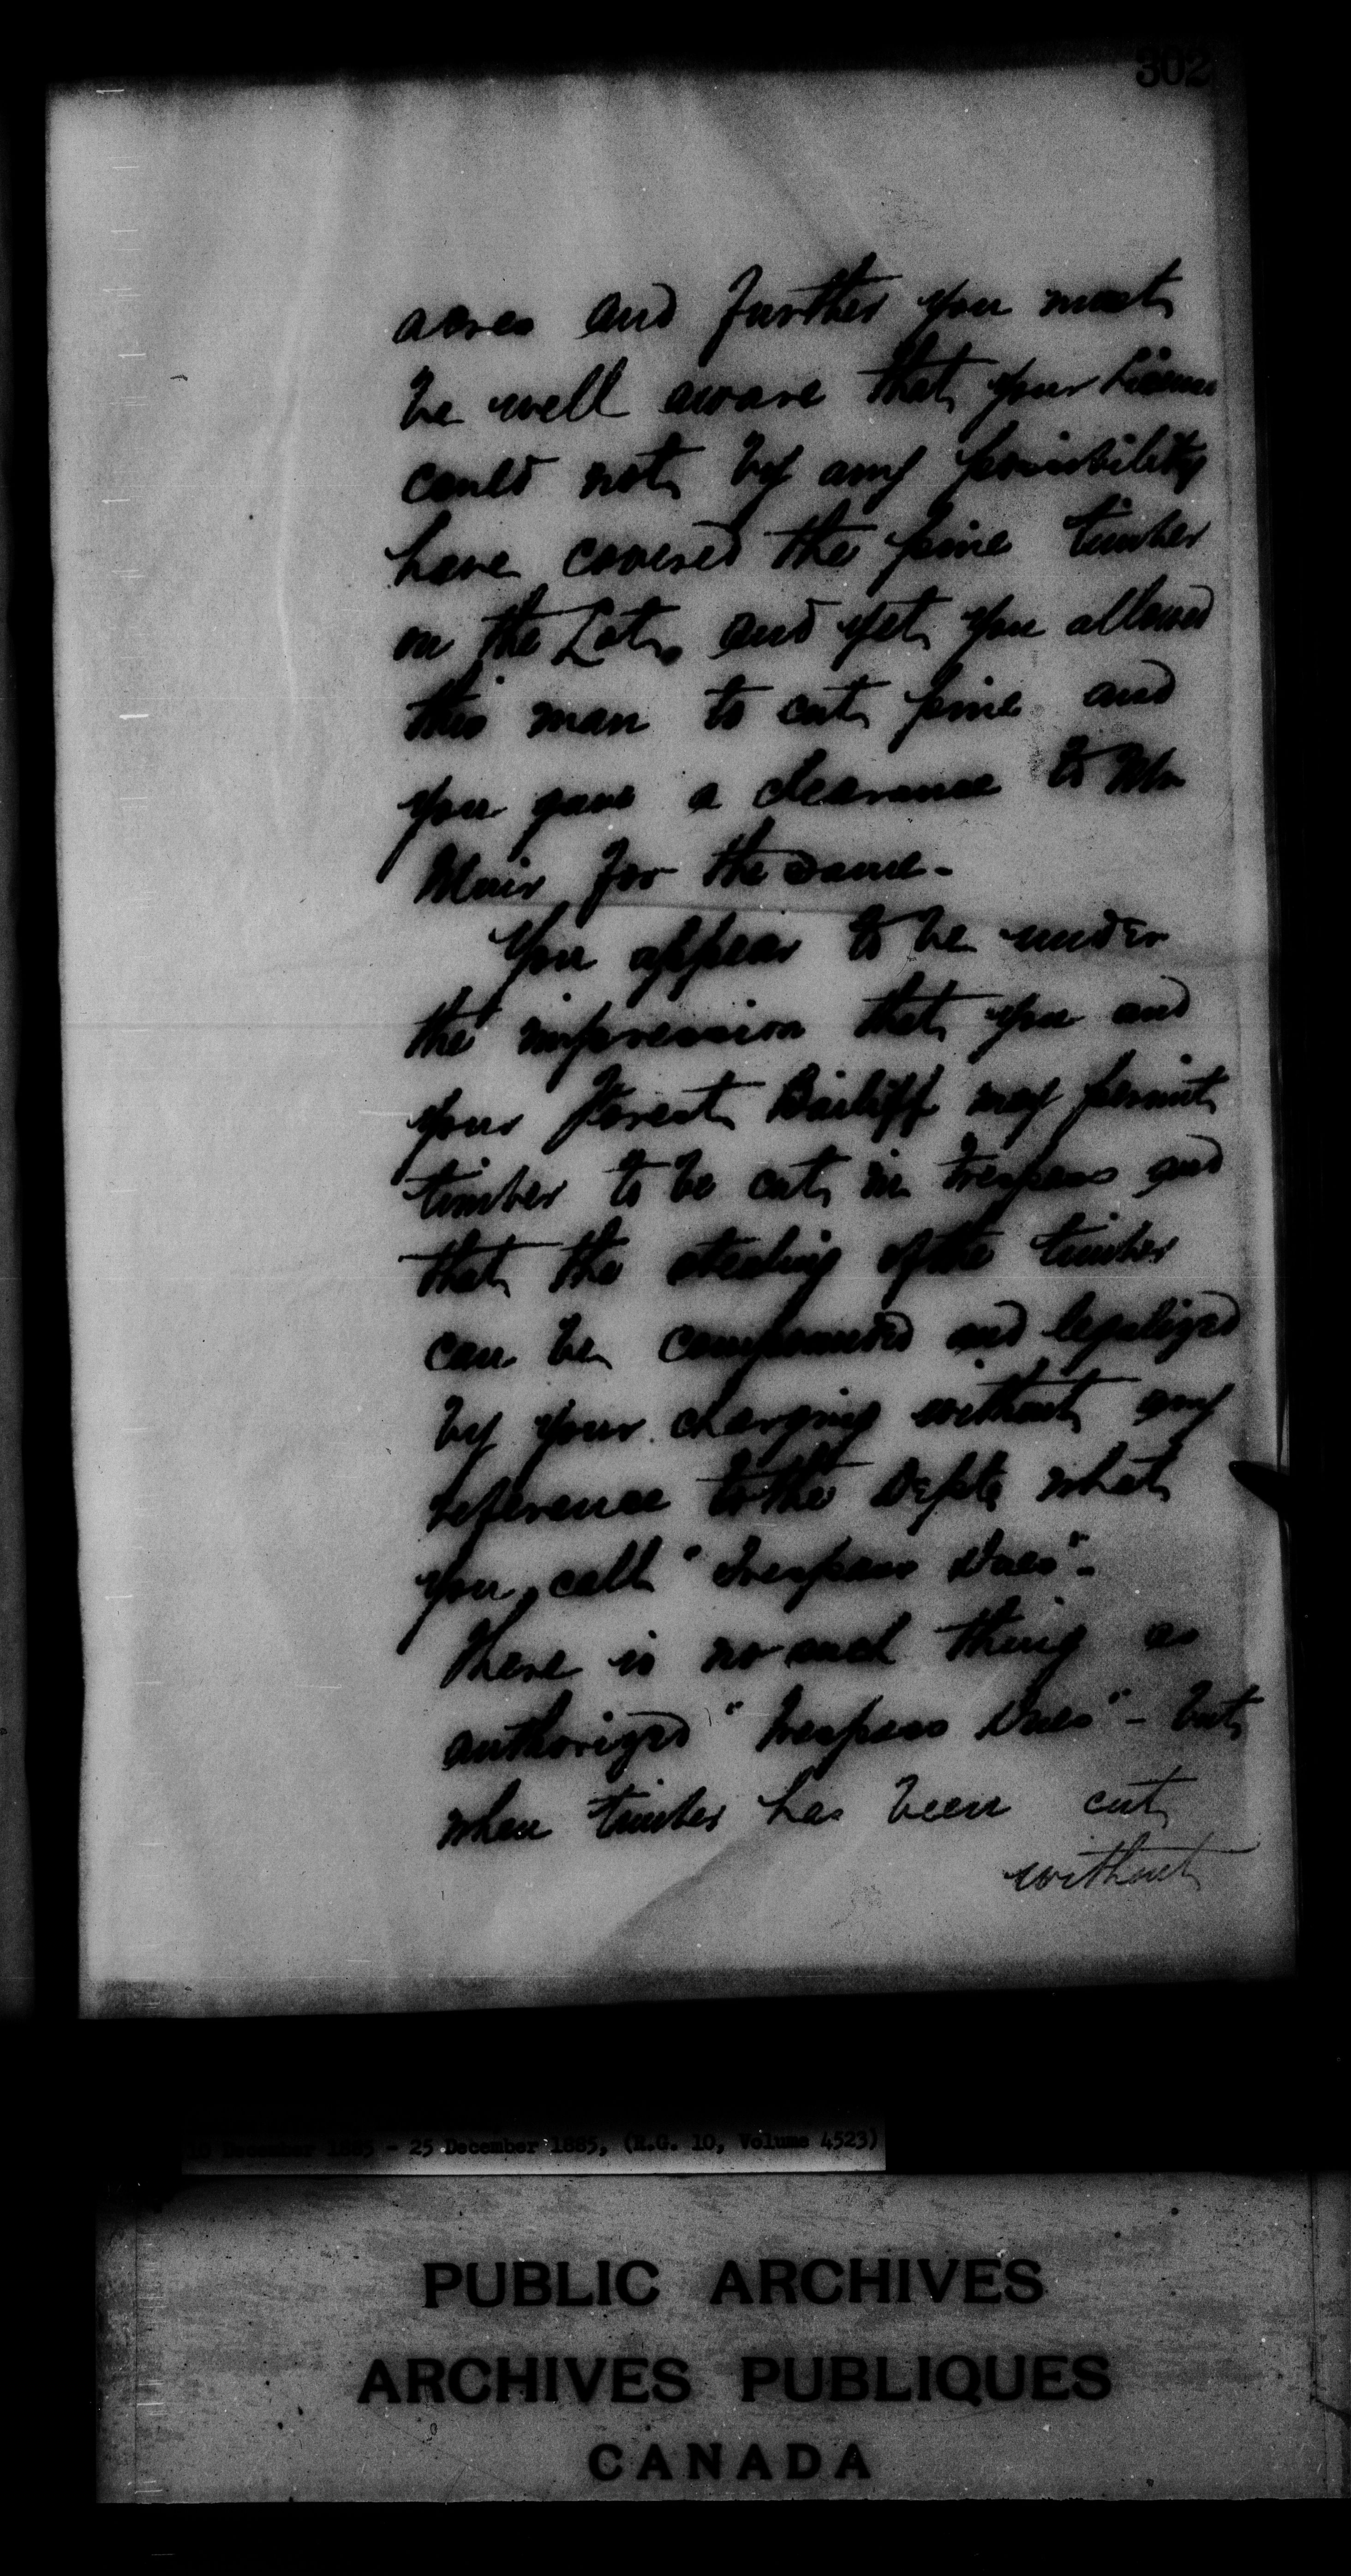 302
acres and further you must
be well aware that your License
could not by any possibility
have covered the pine timber
on the Lot, and yet you allowed
this man to cut pine and
you gave a clearance to Mr
Muir for the same -
You appear to be under
the impression that you and
your Forest Bailiff may permit
timber to be cut in trespass and
that the stealing of the timber
can be compounded and legalized
by your charging without any
reference to the Dept. what
you call "Trespass Dues" -
There is no such thing as
authorized "Trespass Dues" - but
when timber has been cut
without
10 December 1885 - 25 December 1885, (R.G. 10, Volume 4523)
PUBLIC ARCHIVES
ARCHIVES PUBLIQUES
CANADA